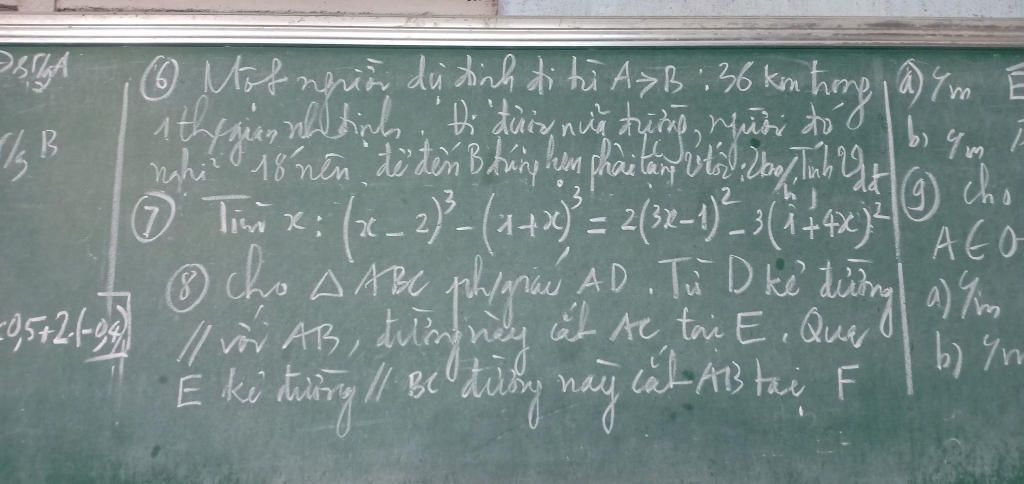 ⑥ Một người dự định đi từ A → B : 36 km trong
1 th/gian nhất định. Đi được nửa đường, người đó
nghỉ 18' nên để đến B đúng hẹn phải tăng v tốc : 2km/h Tính V dđ
⑦ Tìm x : (x - 2)³ - (1+x)³ = 2(3x-1)² - 3(1+4x)²
⑧ Cho △ ABC ph/giác AD. Từ D kẻ đường
// với AB, đường này cắt AC tại E. Qua
E kẻ đường // BC đường này cắt AB tại F
B
0,5+2.(-0,4)
a) c/m
b) c/m
⑨ Cho
A ∈
a) c/m
b) c/m